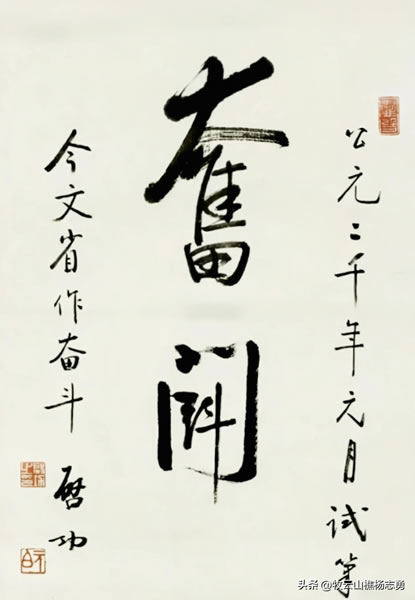 公元二千年元月試筆
奮鬥
今文省作奋斗
啓功
头条 @牧云山樵杨志勇